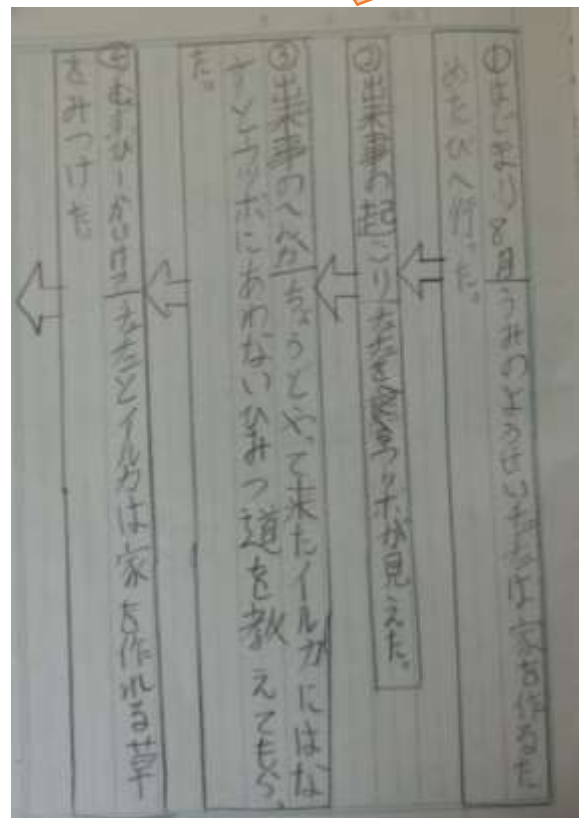 ①はじまり 8月うみのようせいななは家を作るた
めたびへ行った。
②出来事の起こりななをウツボが見えた。
③出来事のへんかちょうどやって来たイルカにはな
すとウツボにあわないひみつ道を教えてもらっ
た。
④むすびーかいけつななとイルカは家を作れる草
をみつけた